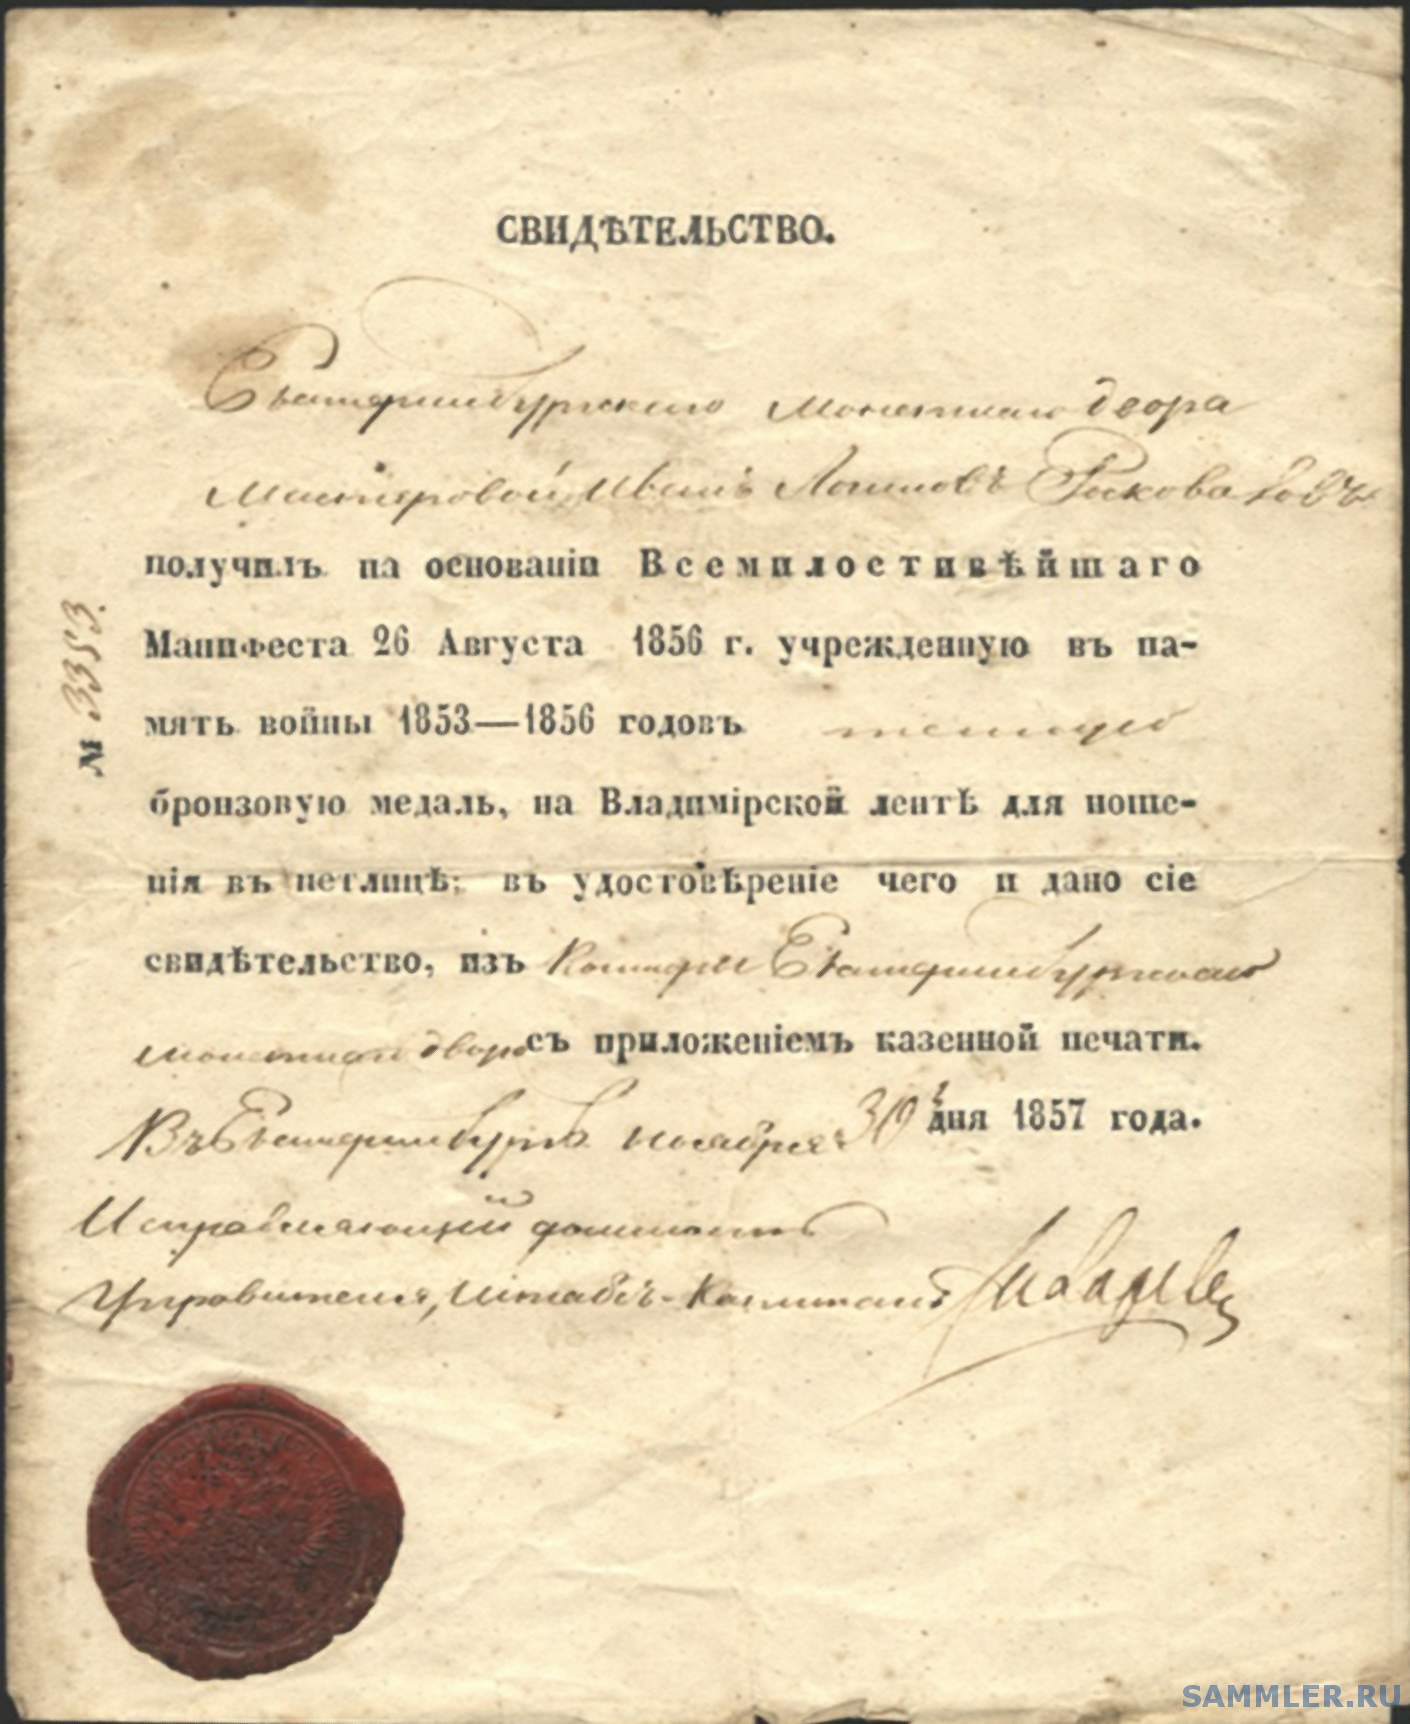 СВИДѢТЕЛЬСТВО.
Екатеринбургскаго Монетнаго двора
Мастеровой Иванъ Логиновъ
получилъ на основаніи Всемилостивѣйшаго
Манифеста 26 Августа 1856 г. учрежденную въ па-
мять войны 1853—1856 годовъ
бронзовую медаль, на Владимірской лентѣ для ноше-
нія въ петлицѣ; въ удостовѣреніе чего и дано сіе
свидѣтельство, изъ Конторы Екатеринбургскаго
монетнаго двора съ приложеніемъ казенной печати.
Въ Екатеринбургѣ Ноября 30 дня 1857 года.
Исправляющій должность
Управителя, Штабсъ-Капитанъ
№ 3353.
SAMMLER.RU